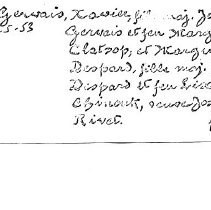 Gervais, Xavier, fils maj. Jo
5-53 Gervais et feu Marg
Clatsop, et Margu
Despard, fille maj.
Despard et feu Lise
Chinouk, veuve Jos
Rivet.